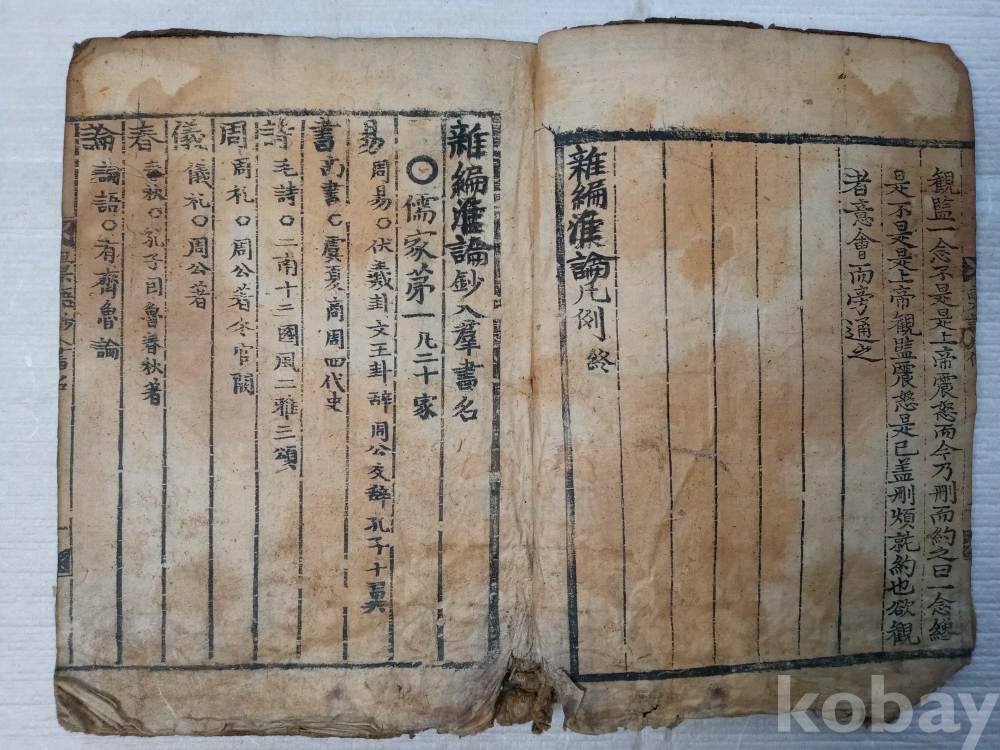 觀監一念不是是上帝震怒而今乃刪而約之曰一念纔
是不是是上帝觀監震怒是已盖刪煩就約也欲觀
者意會而旁通之
雜編准論凡例終
雜編准論鈔入羣書名
〇儒家苐一凡二十家
易周易〇伏羲卦文王卦辞周公爻辞孔子十翼
書尚書〇虞夏商周四代史
詩毛詩〇二南十三國風二雅三頌
周周礼〇周公著冬官闕
儀儀礼〇周公著
春春秋〇孔子因魯春秋著
論論語〇有齊魯論
kobay